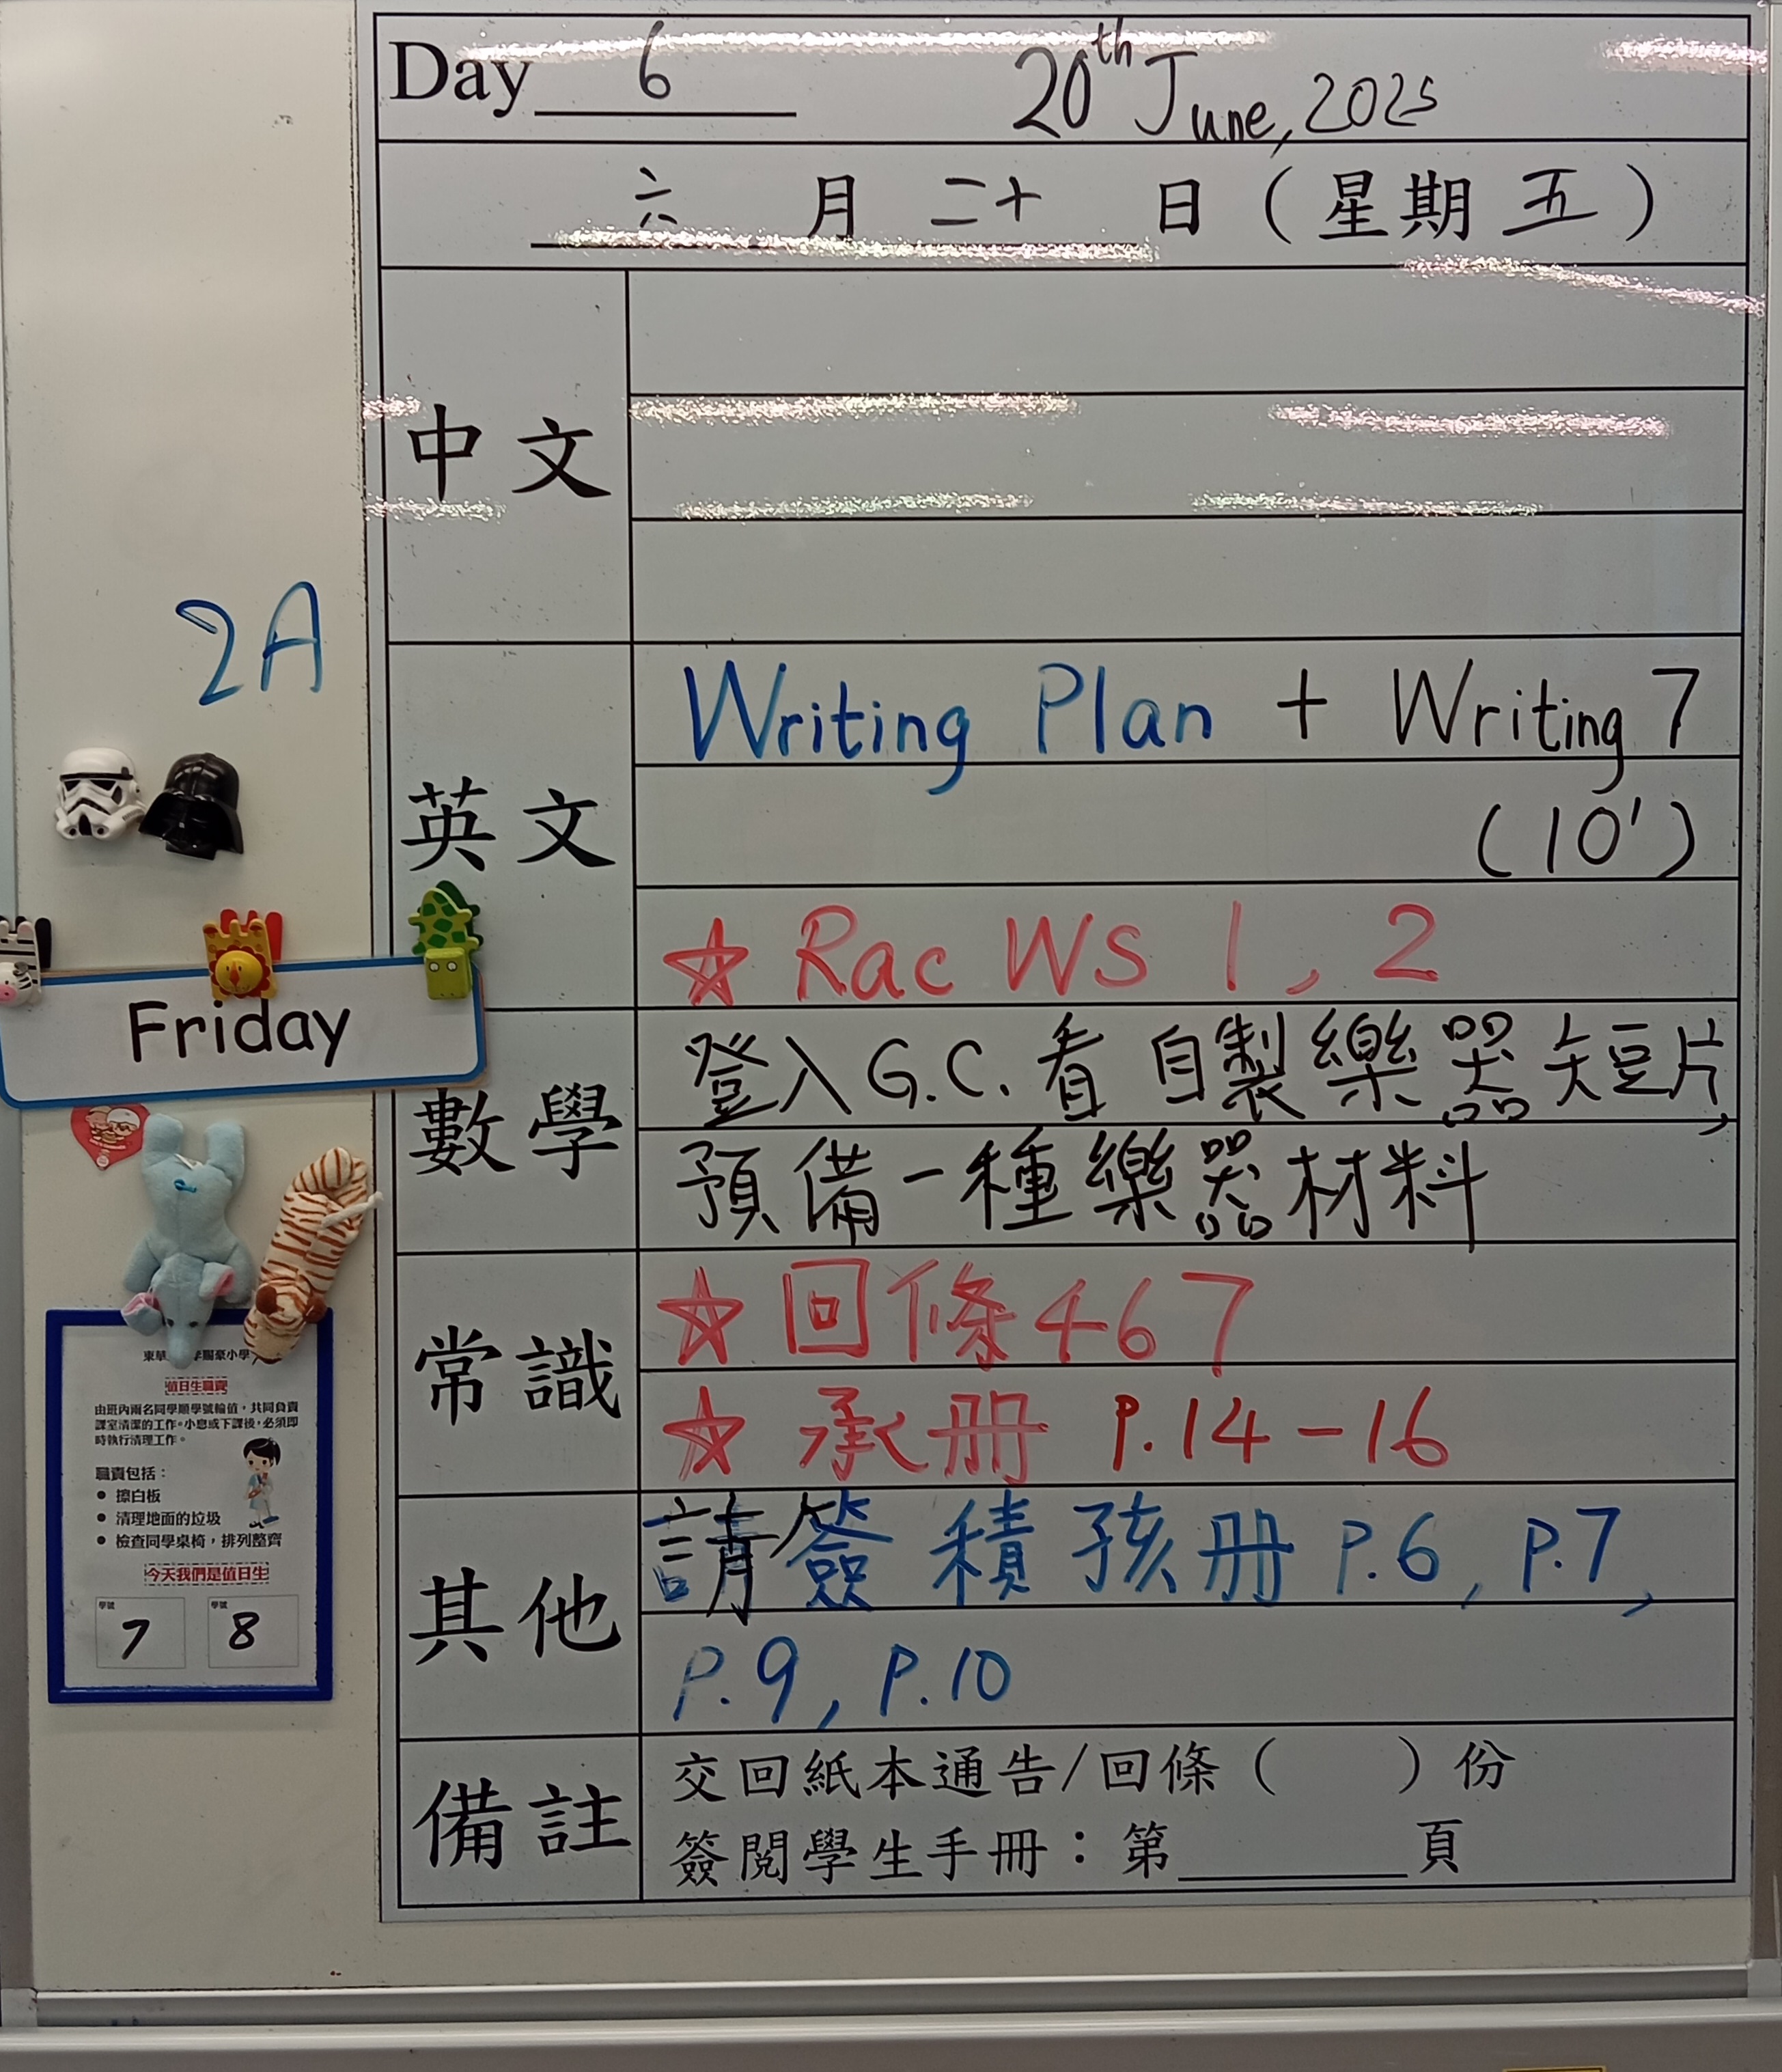 Day 6 20th June, 2025
六 月 二十 日（星期五）
中文
2A
英文
Writing Plan + Writing 7
(10')
☆ Rac WS 1, 2
Friday
數學
登入G.C.看自製樂器短片,
預備一種樂器材料
常識
☆ 回條467
☆ 承册 P.14-16
其他
請簽積孩册 P.6, P.7,
P.9, P.10
備註
交回紙本通告/回條（ ）份
簽閱學生手冊：第______頁
值日生職責
由班內兩名同學順學號輪值，共同負責
課室清潔的工作。小息或下課後，必須即
時執行清理工作。
職責包括：
• 擦白板
• 清理地面的垃圾
• 檢查同學桌椅，排列整齊
今天我們是值日生
學號 學號
7 8